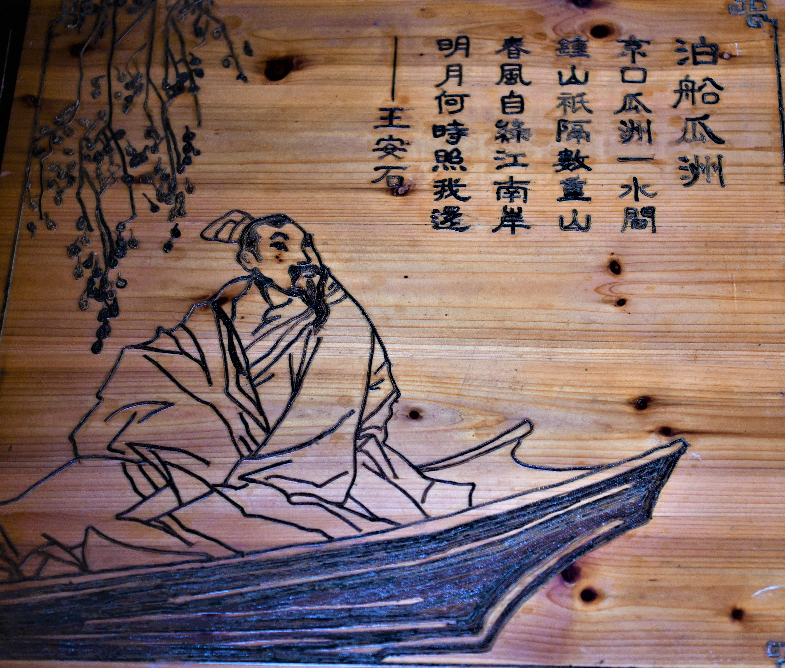 泊船瓜洲
京口瓜洲一水間
鍾山祇隔數重山
春風自綠江南岸
明月何時照我還
——王安石